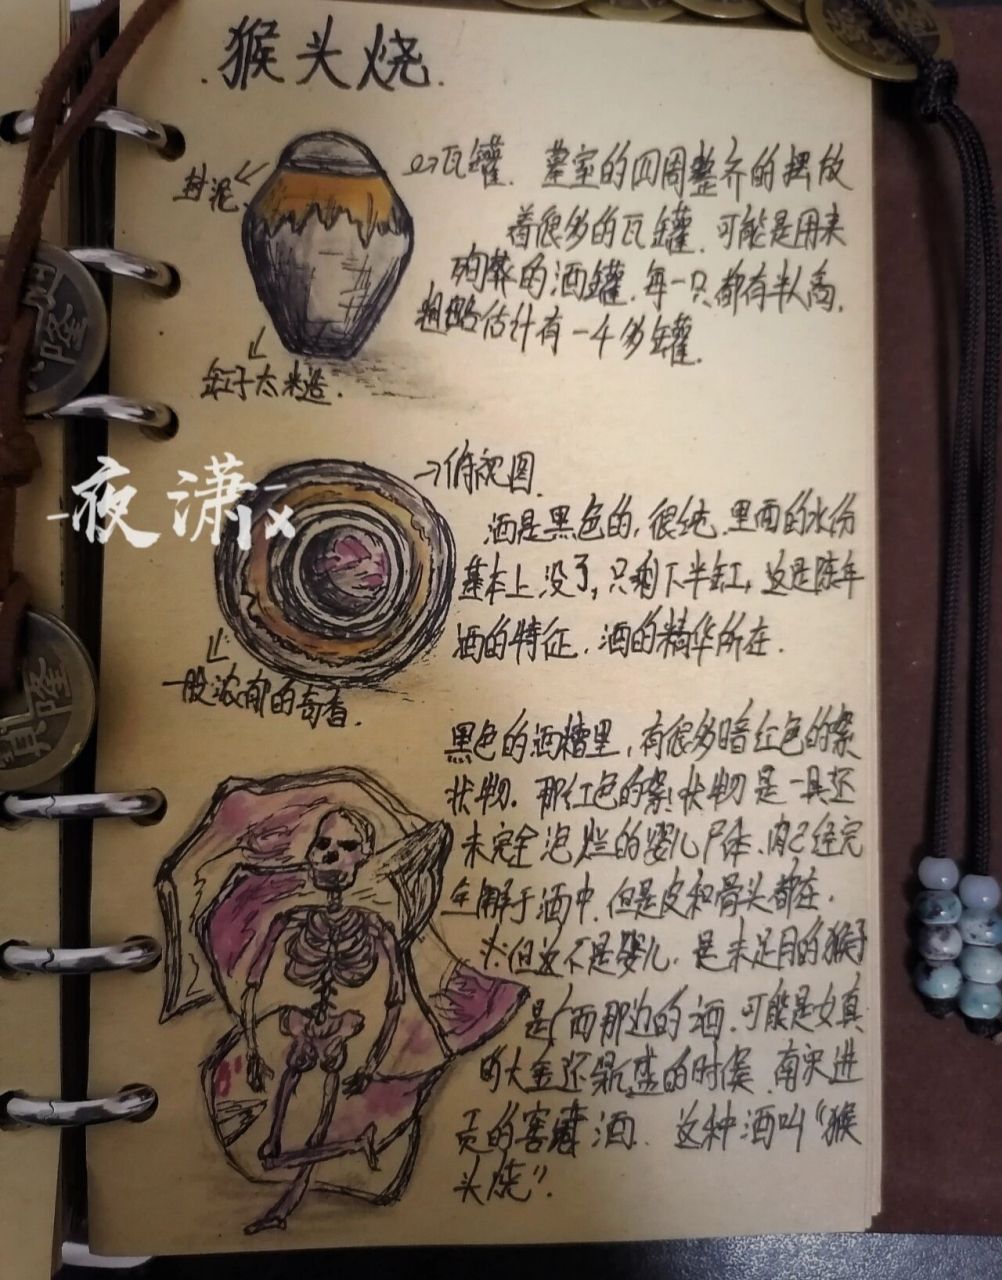 .猴头烧.
封泥.
瓦罐. 墓室的四周整齐的摆放
着很多的瓦罐.可能是用来
殉葬的酒罐.每一只都有半人高.
粗略估计有一千多罐.
缸子太米造.
俯视图.
酒是黑色的,很纯.里面的水份
基本上没了,只剩下半缸,这是陈年
酒的特征.酒的精华所在.
一股浓郁的奇香.
黑色的酒糟里,有很多暗红色的絮
状物.那红色的絮状物是一具还
未完全泡烂的婴儿尸体.肉已经完
全解于酒中.但是皮和骨头都在.
但这不是婴儿.是未足月的猴子
是广西那边的酒.可能是女真
的大金还鼎盛的时候.南宋进
贡的窖藏酒. 这种酒叫“猴
头烧”.
夜潇x
隆
隆